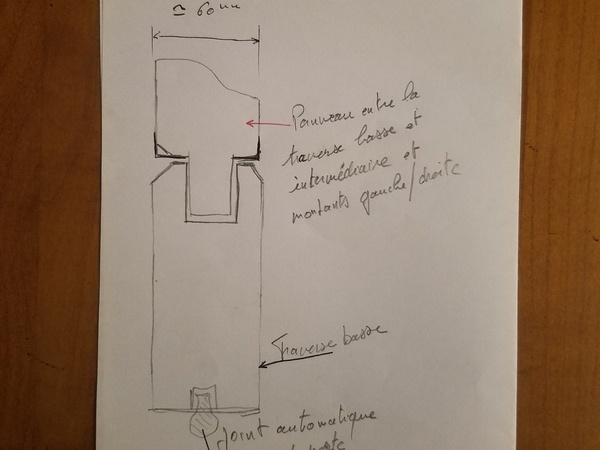 ≃ 60 mm
Panneau entre la
traverse basse et
intermédiaire et
montants gauche/droite
Traverse basse
Joint automatique